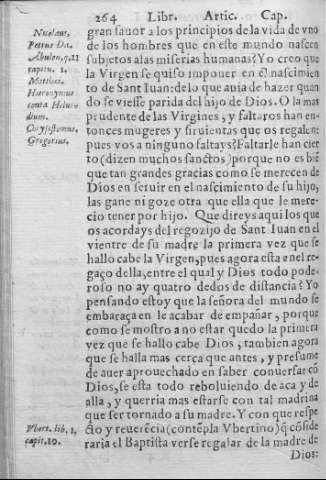 264 Libr. Artic. Cap.
Nicolaus,
Petrus Da.
Abulen, q.21
capitu. 1.
Matthæi.
Hieronymus
contra Heluidium.
Chrysostomus,
Gregorius.
gran fauor a los principios de la vida de vno
de los hombres que en este mundo nascen
subjetos a las miserias humanas? Yo creo que
la Virgen se quiso imponer en el nascimien
to de Sant Iuan: de lo que auia de hazer quan
do se viesse parida del hijo de Dios. O la mas
prudente de las Virgines, y faltaros han en-
tonces mugeres y siruientas que os regalen:
pues vos a ninguno faltays? Faltarle han cier
to (dizen muchos sanctos) porque no es biē
que tan grandes gracias como se merecen de
Dios en seruir en el nascimiento de su hijo,
las gane ni goze otra que ella que le mere-
cio tener por hijo. Que direys aqui los que
os acordays del regozijo de Sant Iuan en el
vientre de su madre la primera vez que se
hallo cabe la Virgen, pues agora esta en el re-
gaço della, entre el qual y Dios todo pode-
roso no ay quatro dedos de distancia? Yo
pensando estoy que la señora del mundo se
embaraça en le acabar de empañar, porque
como se mostro a no estar quedo la primera
vez que se hallo cabe Dios, tambien agora
que se halla mas cerca que antes, y presume
de auer aprouechado en saber conuersar cō
Dios, se esta todo reboluiendo de aca y de
alla, y querria mas estarse con tal madrina
que ser tornado a su madre. Y con que respe
cto y reuerēcia (contēpla Vbertino) q̄ cōside
raria el Baptista verse regalar de la madre de
Dios:
Vbert. lib. 1,
capit. 10.